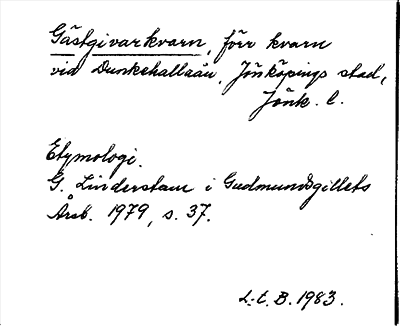 Gästgivarkvarn, förr kvarn
vid Dunkehallaån, Jönköpings stad,
Jönk. l.
Etymologi.
G. Linderstam i Gudmundsgillets
Årsb. 1979, s. 37.
L.E.B. 1983.